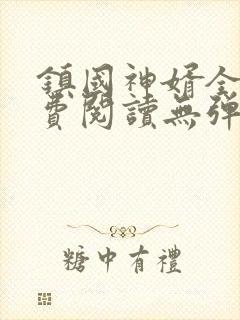 鎮國神婿全
費閱讀無彈
糖中有禮